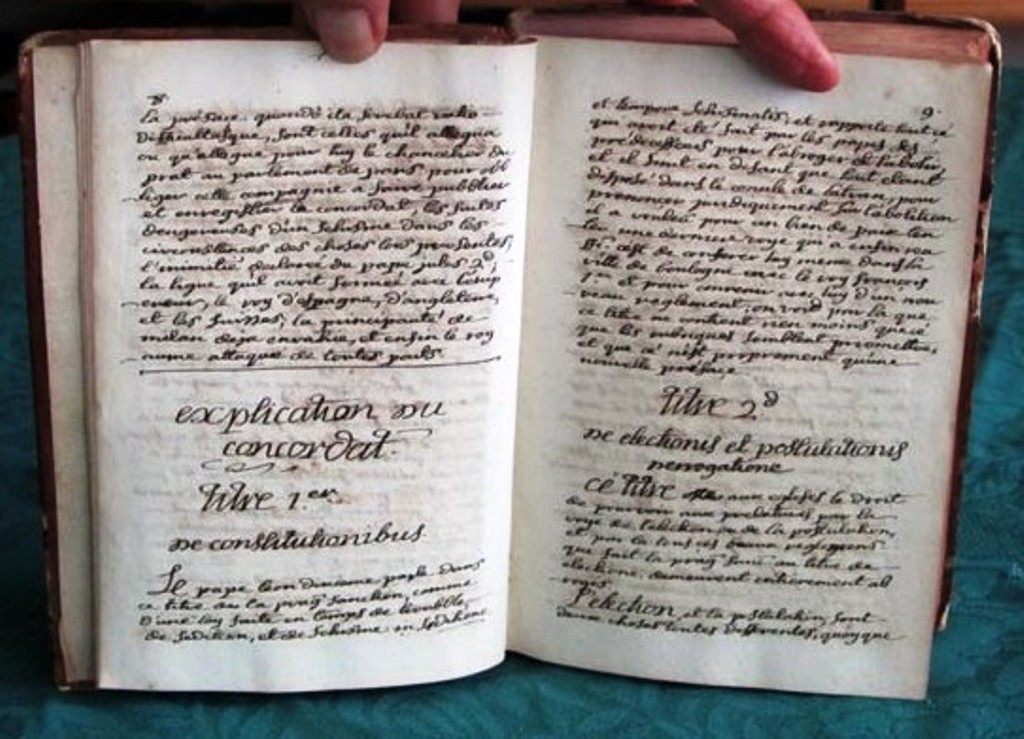 8
La préface, quand
sont celles qu'il allegua
ou qu'allegue pour luy le chancelier du
prat au parlement de paris pour obl
liger cette compagnie a faire publier
et enregistrer le concordat, les suites
dangereuses d'un schisme dans les
circonstances des choses lors presentes,
l'inimitié declarée du pape jules 2d;
la ligue qu'il avoit formée avec l'emp
ereur, le roy d'espagne, d'angleterre,
et les suisses, la principauté de
milan deja envahie, et enfin le roy
meme attaqué de toutes parts.
explication du
concordat.
titre 1.er
de constitutionibus
Le pape leon dixieme parle dans
ce titre de la prag sanction, comme
d'une loy faite en temps de trouble,
de sedition, et de schisme in seditione
9.
et tempore schismatis, et rapporte tout ce
qui avoit été fait par les papes ses
prédecesseurs pour l'abroger et l'abolir,
et il finit en disant que tout etant
disposé dans le concile de latran, pour
prononcer juridiquement sur l'abolition
il a voulu pour un bien de paix ten
ter une derniere voye qui a enfin reu
ssi, c'est de conferer luy meme dans la
ville de boulogne avec le roy françois
1.er et pour convenir avec luy d'un nou
veau reglement, on void par la que
ce titre ne contient rien moins que ce
que les rubriques semblent promettre,
et que ce n'est proprement qu'une
nouvelle preface.
titre 2d
de electionis et postulationis
derrogatione
ce titre aux eglises le droit
de pourvoir aux prelatures par la
voye de l'election ou de la postulation,
et par la tous ces beaux reglemens
que fait la prag sanc au titre de
elections, demeurent entierement ab
rogés.
L'election, et la postulation sont
deux choses toutes differentes, quoyque